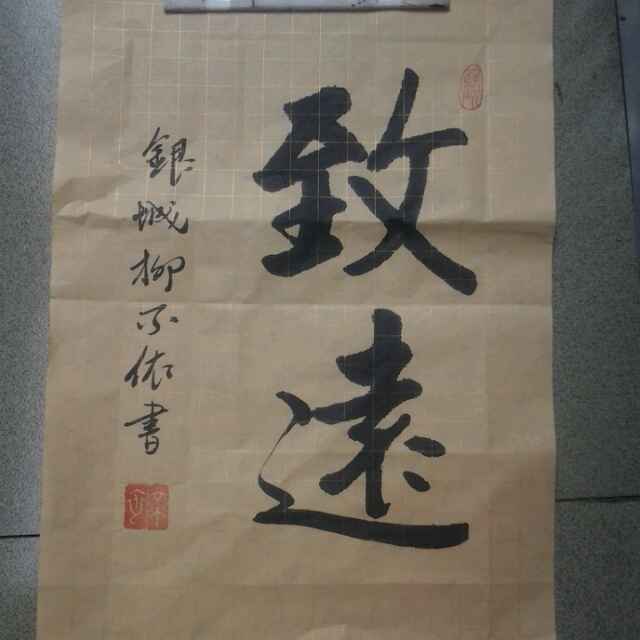 致遠
銀城柳不依書